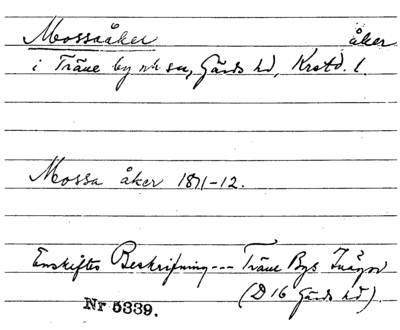 Mossaåker åker
i Träne by o sn, Gärds hd, Krstd. l.
Mossa åker 1811-12.
Enskiftes Beskrifning --- Träne Bys Inägor
(D 16 Gärds hd).
Nr 5339.